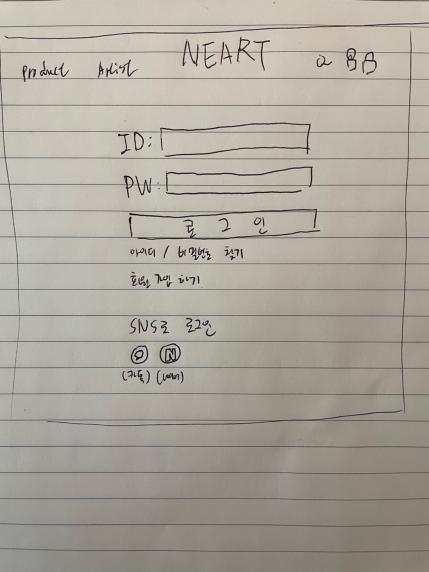 Product Artist NEART
ID:
PW:
로그인
아이디 / 비밀번호 찾기
회원 가입 하기
SNS로 로그인
N
(카톡) (네이버)